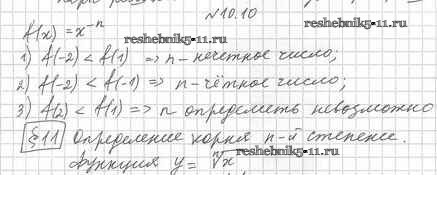 №10.10
reshebnik5-11.ru
f(x) = x⁻ⁿ
reshebnik5-11.ru
1) f(-2) < f(1) => n - нечётное число;
2) f(-2) < f(-1) => n - чётное число;
3) f(2) < f(1) => n определить невозможно
§11 Определение корня n-й степени.
reshebnik5-11.ru
Функция y = ⁿ√x